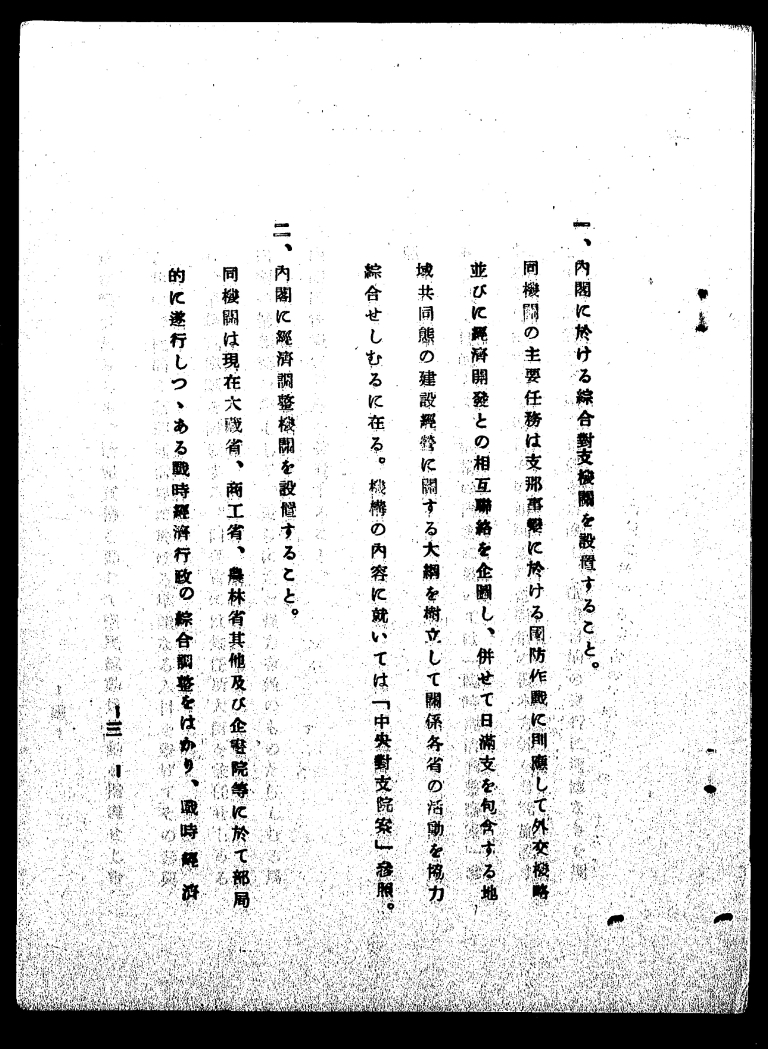 一、內閣に於ける綜合對支機關を設置すること。
同機關の主要任務は支那事變に於ける國防作戰に則應して外交樣略
並びに經濟開發との相互聯絡を企圖し、併せて日滿支を包含する地
域共同態の建設經營に關する大綱を樹立して關係各省の活動を協力
綜合せしむるに在る。機構の內容に就いては「中央對支院案」參照。
二、內閣に經濟調整機關を設置すること。
同機關は現在大藏省、商工省、農林省其他及び企畫院等に於て部局
的に遂行しつゝある戰時經濟行政の綜合調整をはかり、戰時經濟
ー三ー